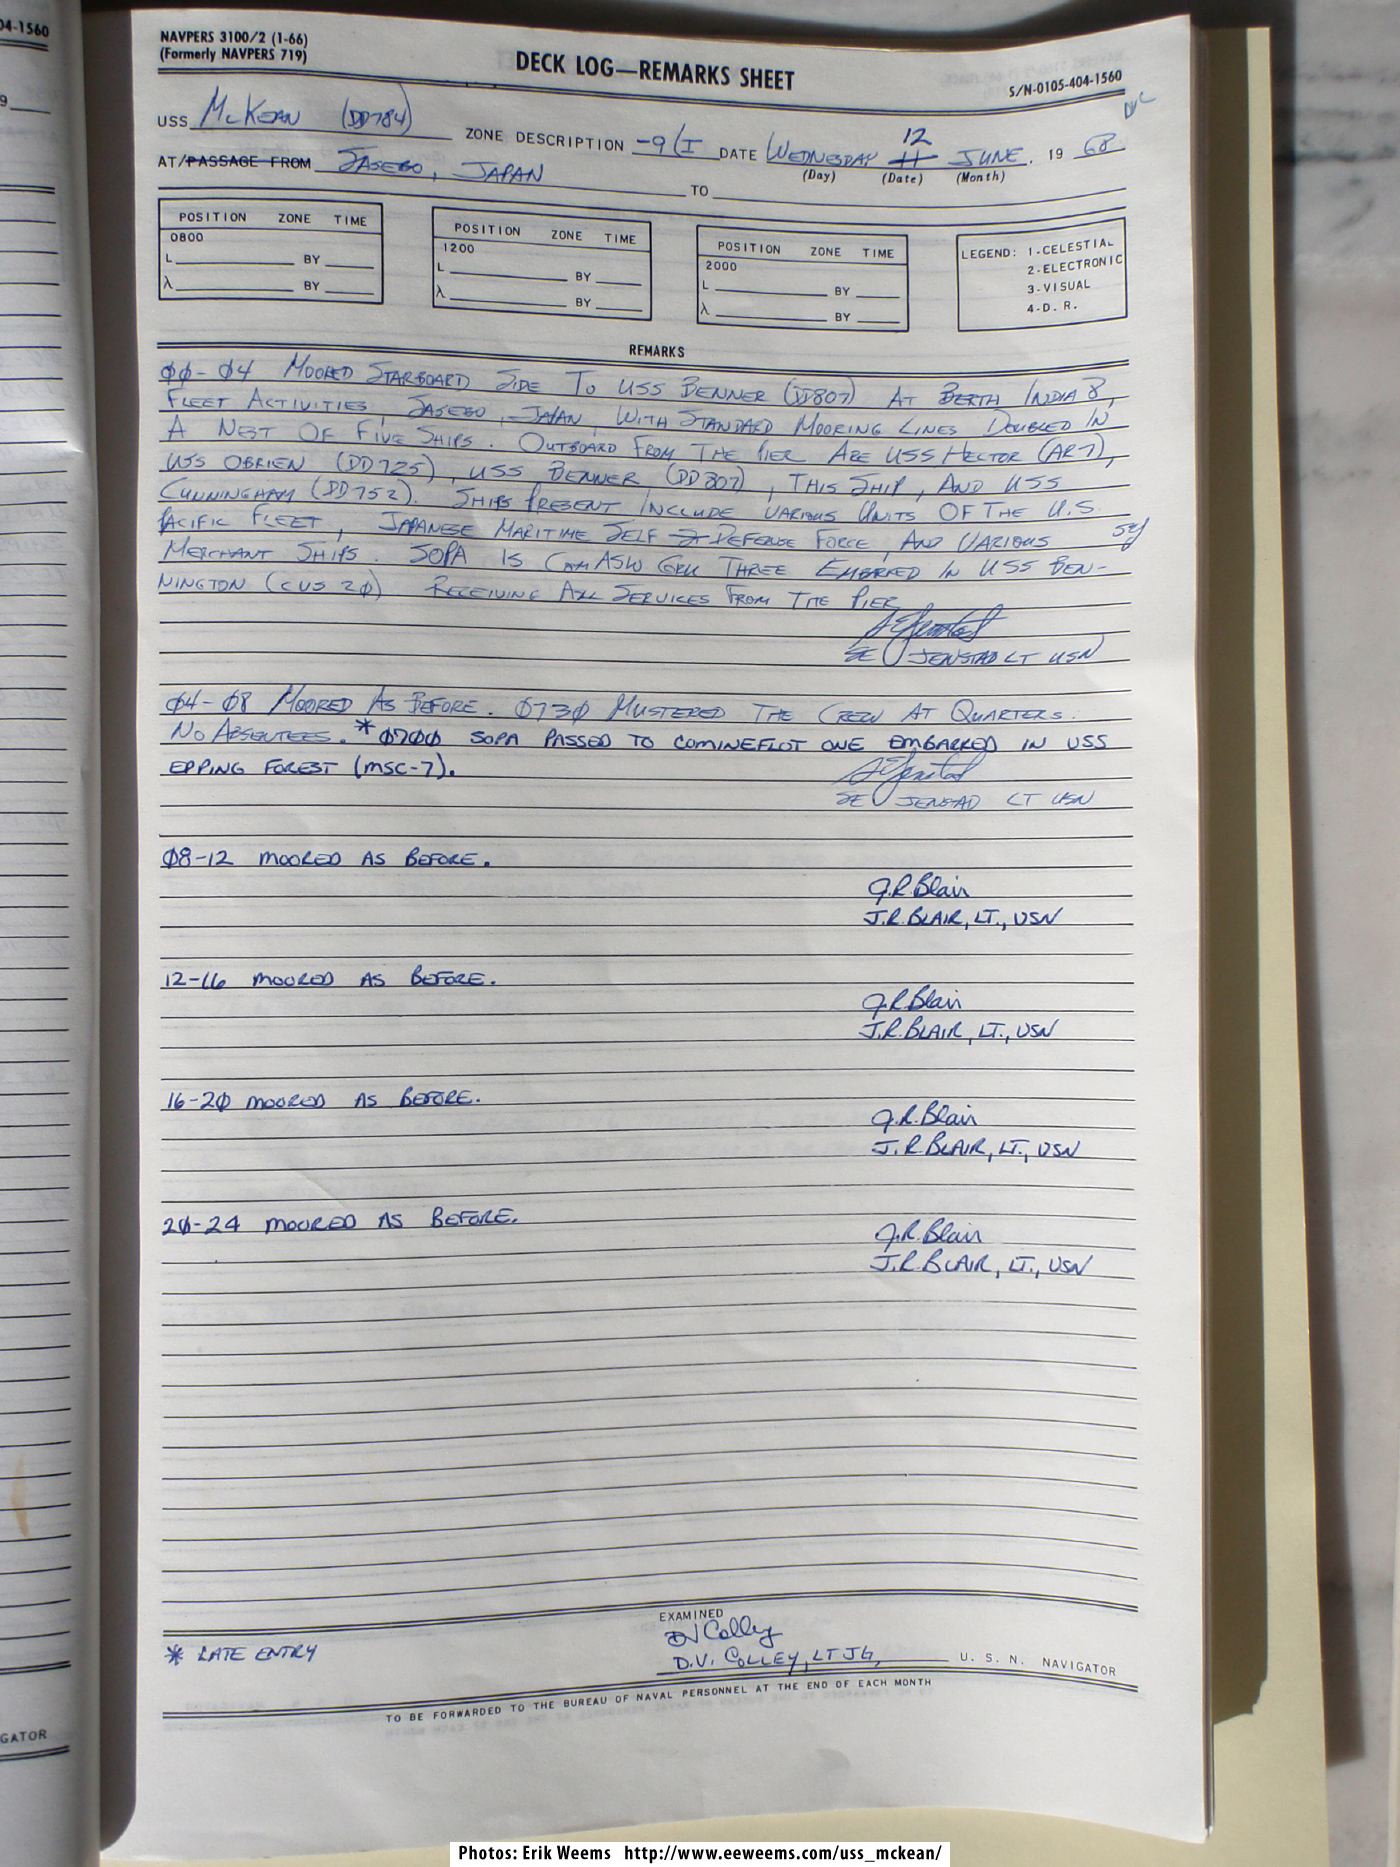 04-1560
9
NAVPERS 3100/2 (1-66)
(Formerly NAVPERS 719)
DECK LOG—REMARKS SHEET
S/N-0105-404-1560
USS McKEAN (DD784) ZONE DESCRIPTION -9(I DATE WEDNESDAY 12 11 JUNE, 19 68
(Day) (Date) (Month)
AT/PASSAGE FROM SASEBO, JAPAN TO
POSITION ZONE TIME
0800
L BY
λ BY
POSITION ZONE TIME
1200
L BY
λ BY
POSITION ZONE TIME
2000
L BY
λ BY
LEGEND: 1-CELESTIAL
2-ELECTRONIC
3-VISUAL
4-D. R.
REMARKS
00-04 MOORED STARBOARD SIDE TO USS BENNER (DD807) AT BERTH INDIA 8,
FLEET ACTIVITIES, SASEBO, JAPAN, WITH STANDARD MOORING LINES DOUBLED IN
A NEST OF FIVE SHIPS. OUTBOARD FROM THE PIER ARE USS HECTOR (AR7),
USS OBRIEN (DD725), USS BENNER (DD807), THIS SHIP, AND USS
CUNNINGHAM (DD752). SHIPS PRESENT INCLUDE VARIOUS UNITS OF THE U.S.
PACIFIC FLEET, JAPANESE MARITIME SELF DEFENSE FORCE, AND VARIOUS
MERCHANT SHIPS. SOPA IS COMASW GRU THREE EMBRKED IN USS BEN-
NINGTON (CVS 20) RECEIVING ALL SERVICES FROM THE PIER
SE JENSTAD LT USN
04-08 MOORED AS BEFORE. 0730 MUSTERED THE CREW AT QUARTERS.
NO ABSENTEES. *0700 SOPA PASSED TO COMINEFLOT ONE EMBARKED IN USS
EPPING FOREST (MSC-7).
SE JENSTAD LT USN
08-12 MOORED AS BEFORE.
J.R. Blair
J.R. BLAIR, LT., USN
12-16 MOORED AS BEFORE.
J.R. Blair
J.R. BLAIR, LT., USN
16-20 MOORED AS BEFORE.
J.R. Blair
J.R. BLAIR, LT., USN
20-24 MOORED AS BEFORE.
J.R. Blair
J.R. BLAIR, LT., USN
EXAMINED
* LATE ENTRY
DV Colley
D.V. COLLEY, LTJG, U. S. N. NAVIGATOR
TO BE FORWARDED TO THE BUREAU OF NAVAL PERSONNEL AT THE END OF EACH MONTH
GATOR
Photos: Erik Weems http://www.eeweems.com/uss_mckean/